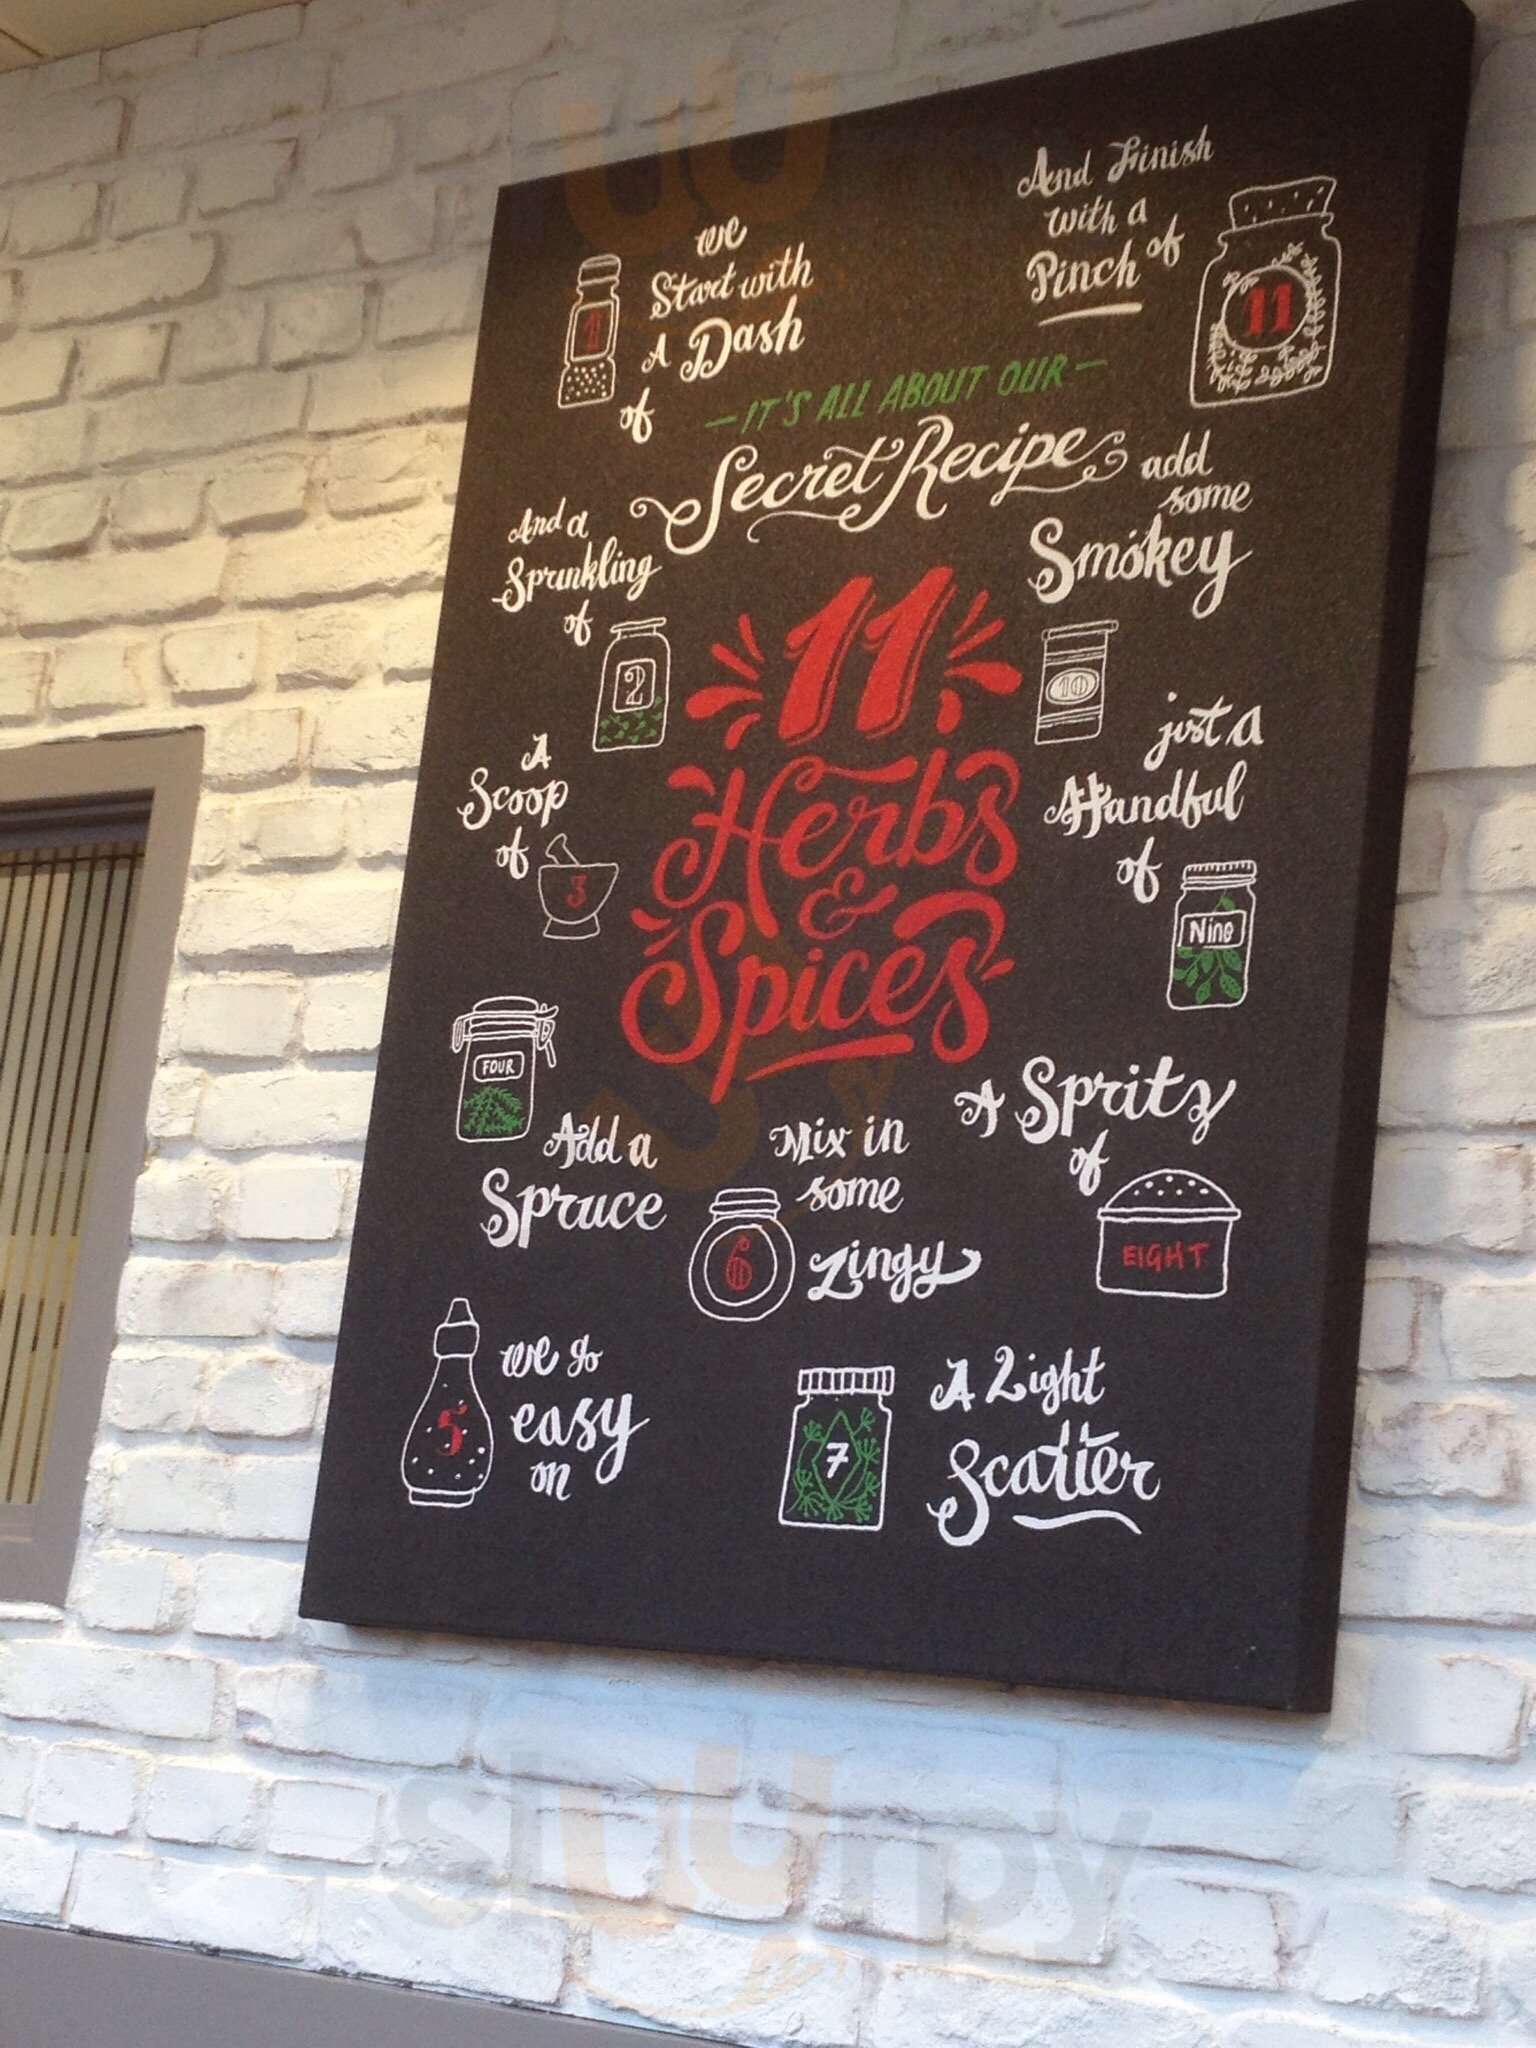 we
Start with
A Dash
of
1
And a
Sprinkling
of
2
A
Scoop
of
3
FOUR
Add a
Spruce
5
we go
easy
on
6
Mix in
some
Zingy
7
A Light
Scatter
A Spritz
of
EIGHT
just a
Handful
of
Nine
add
some
Smokey
10
And Finish
with a
Pinch of
11
—IT'S ALL ABOUT OUR—
Secret Recipe
11
Herbs
&
Spices
slurpy